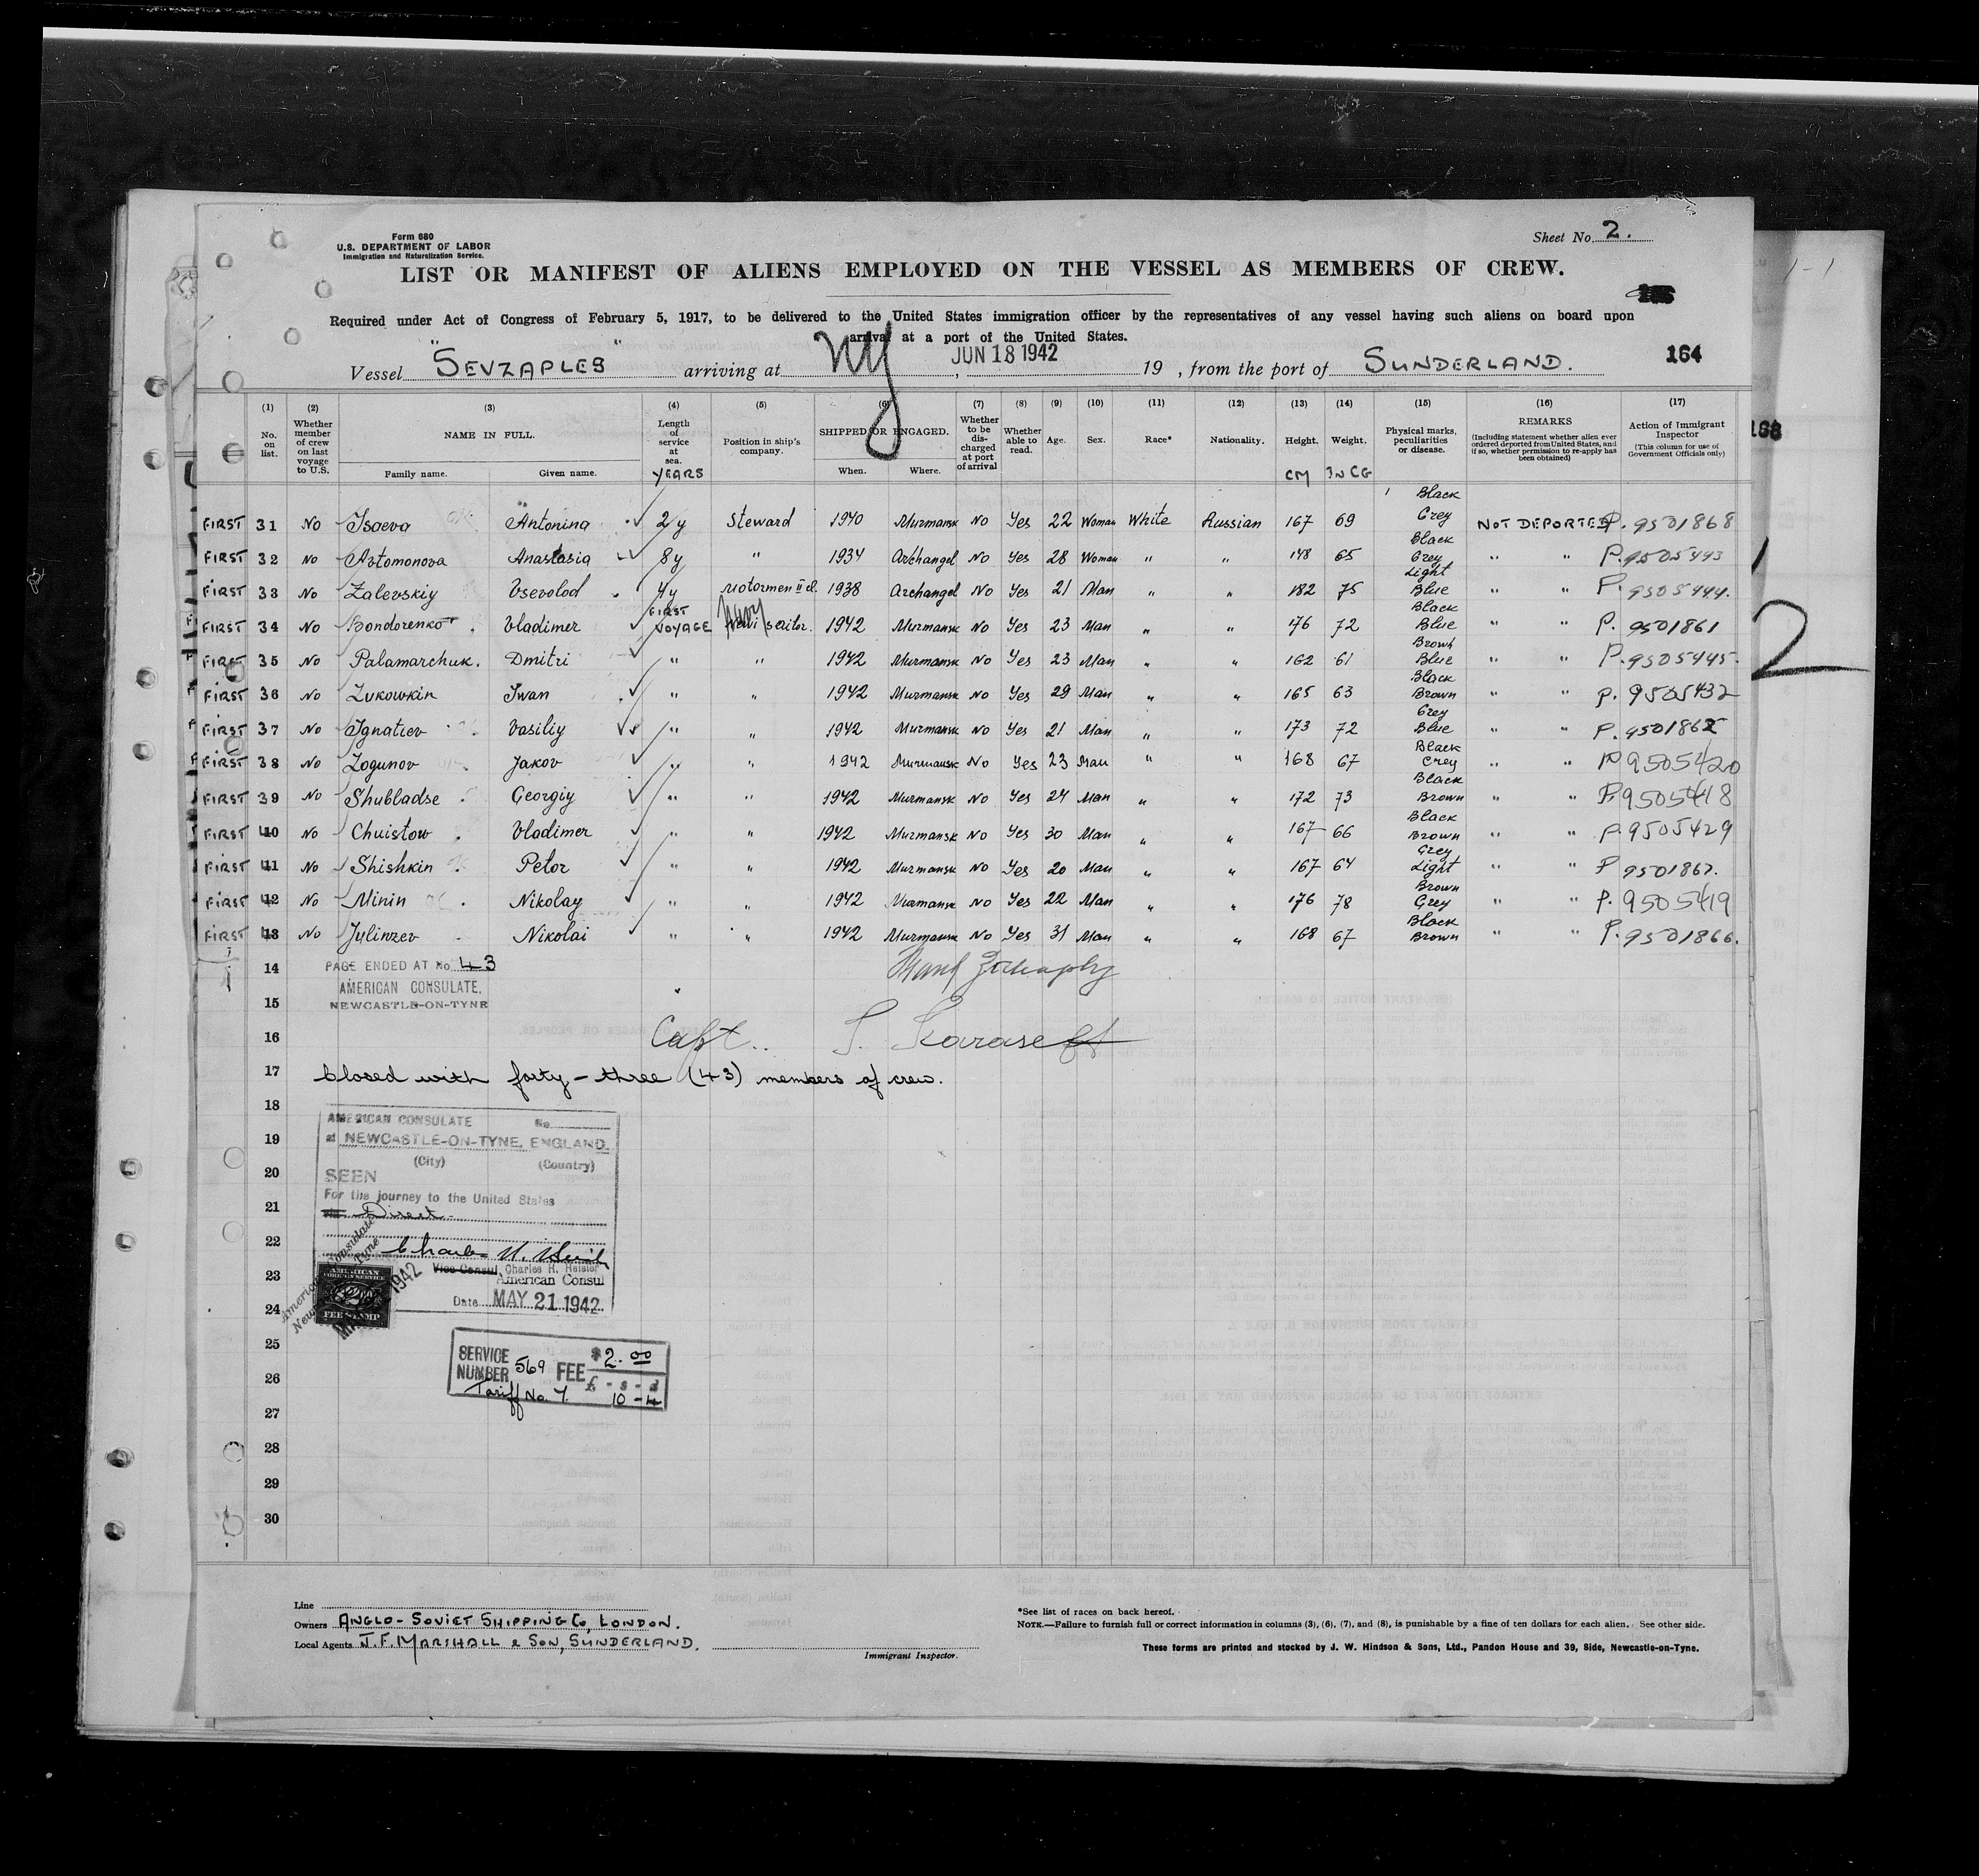 Form 680
U.S. DEPARTMENT OF LABOR
Immigration and Naturalization Service.
Sheet No. 2.
LIST OR MANIFEST OF ALIENS EMPLOYED ON THE VESSEL AS MEMBERS OF CREW.
Required under Act of Congress of February 5, 1917, to be delivered to the United States immigration officer by the representatives of any vessel having such aliens on board upon
arrival at a port of the United States.
Vessel "SEVZAPLES" arriving at NY, JUN 18 1942 19 , from the port of SUNDERLAND. 164
168
(1) No. on list.
(2) Whether member of crew on last voyage to U.S.
(3) NAME IN FULL. Family name. Given name.
(4) Length of service at sea. YEARS
(5) Position in ship's company.
(6) SHIPPED OR ENGAGED. When. Where.
(7) Whether to be discharged at port of arrival
(8) Whether able to read.
(9) Age.
(10) Sex.
(11) Race*
(12) Nationality.
(13) Height. CM
(14) Weight. IN CG
(15) Physical marks, peculiarities or disease.
(16) REMARKS (Including statement whether alien ever ordered deported from United States, and if so, whether permission to re-apply has been obtained)
(17) Action of Immigrant Inspector (This column for use of Government Officials only)
FIRST 31 No Isaeva Antonina 2y Steward 1940 Murmansk No Yes 22 Woman White Russian 167 69 Black Grey NOT DEPORTED P. 9501868
FIRST 32 No Avtomonova Anastasia 8y " 1934 Archangel No Yes 28 Woman " " 148 65 Black Grey " " P. 9505443
FIRST 33 No Zalevskiy Vsevolod 4y Motormen II cl. 1938 Archangel No Yes 21 Man " " 182 75 Light Blue " " P. 9505444.
FIRST 34 No Bondorenko Vladimer FIRST VOYAGE Navy 1942 Murmansk No Yes 23 Man " " 176 72 Black Blue " " P. 9501861
FIRST 35 No Palamarchuk. Dmitri " " 1942 Murmansk No Yes 23 Man " " 162 61 Brown Blue " " P. 9505445.
FIRST 36 No Zukowkin Iwan " " 1942 Murmansk No Yes 29 Man " " 165 63 Black Brown " " P. 9505432
FIRST 37 No Ignatiev Vasiliy " " 1942 Murmansk No Yes 21 Man " " 173 72 Grey Blue " " P. 9501865
FIRST 38 No Zogunov Jakov " " 1942 Murmansk No Yes 23 Man " " 168 67 Black Grey " " P 9505420
FIRST 39 No Shubladse Georgiy " " 1942 Murmansk No Yes 24 Man " " 172 73 Black Brown " " P. 9505418
FIRST 40 No Chuistow Vladimer " " 1942 Murmansk No Yes 30 Man " " 167 66 Black Brown " " P. 9505429
FIRST 41 No Shishkin Petor " " 1942 Murmansk No Yes 20 Man " " 167 64 Grey Light " " P 9501867.
FIRST 42 No Minin Nikolay " " 1942 Murmansk No Yes 22 Man " " 176 78 Brown Grey " " P. 9505419
FIRST 43 No Julinzev Nikolai " " 1942 Murmansk No Yes 31 Man " " 168 67 Black Brown " " P. 9501866.
2
14 PAGE ENDED AT No. 43
AMERICAN CONSULATE,
15 NEWCASTLE-ON-TYNE
16 Capt. S. Karaseff
17 Closed with forty-three (43) members of crew.
18
AMERICAN CONSULATE No.
19 at NEWCASTLE-ON-TYNE, ENGLAND.
(City) (Country)
20 SEEN
For the journey to the United States
21 Direct
22
Vice Consul Charles H. Heisler
23 American Consul
AMERICAN FOREIGN SERVICE
FEE STAMP
24 Date MAY 21 1942
25 SERVICE NUMBER 569 FEE $2.00
26 £ - s - d
Tariff No. 7. 10 - 4
27
28
29
30
Line
Owners ANGLO-SOVIET SHIPPING Co, LONDON.
Local Agents J. F. MARSHALL & SON, SUNDERLAND.
Immigrant Inspector.
*See list of races on back hereof.
NOTE.—Failure to furnish full or correct information in columns (3), (6), (7), and (8), is punishable by a fine of ten dollars for each alien. See other side.
These forms are printed and stocked by J. W. Hindson & Sons, Ltd., Pandon House and 39, Side, Newcastle-on-Tyne.